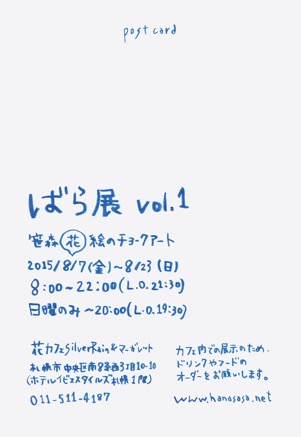 post card
ばら展 vol.1
笹森花絵のチョークアート
2015/8/7(金)～8/23(日)
8:00～22:00(L.O.21:30)
日曜のみ～20:00(L.O.19:30)
花カフェSilverRain&マーガレット
札幌市中央区南8条西3丁目10-10
(ホテルイビススタイルズ札幌1階)
011-511-4187
カフェ内での展示のため、
ドリンクやフードの
オーダーをお願いします。
www.hanasasa.net